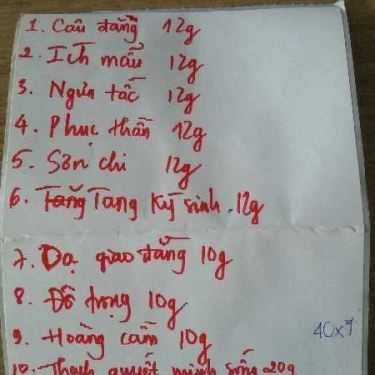 1. Câu đằng 12g
2. Ích mẫu 12g
3. Ngưu tấc 12g
4. Phục thần 12g
5. Sơn chi 12g
6. Tang Ký sinh 12g
7. Dạ giao đằng 10g
8. Đỗ trọng 10g
9. Hoàng cầm 10g
40x7
10. Thạch quyết minh sống 20g